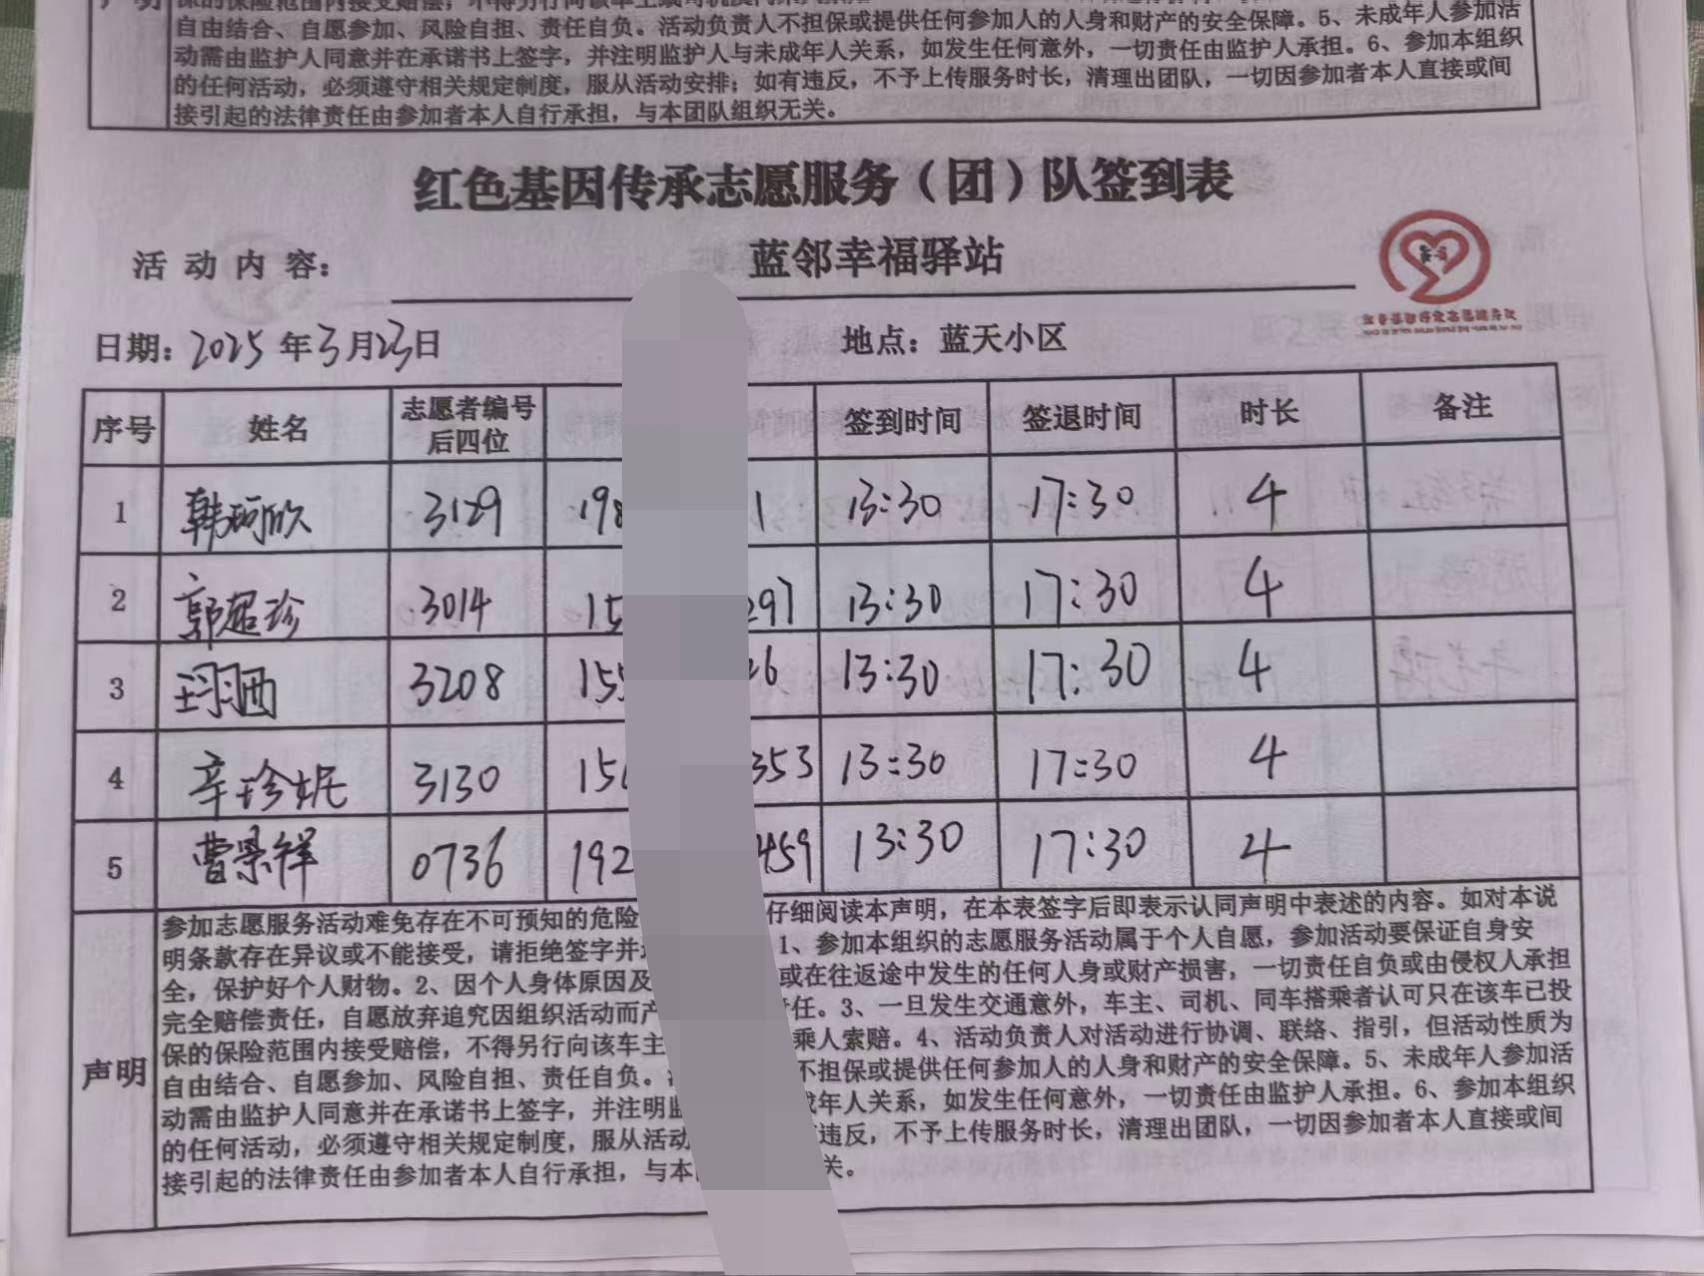 自由结合、自愿参加、风险自担、责任自负。活动负责人不担保或提供任何参加人的人身和财产的安全保障。5、未成年人参加活
动需由监护人同意并在承诺书上签字，并注明监护人与未成年人关系，如发生任何意外，一切责任由监护人承担。6、参加本组织
的任何活动，必须遵守相关规定制度，服从活动安排；如有违反，不予上传服务时长，清理出团队，一切因参加者本人直接或间
接引起的法律责任由参加者本人自行承担，与本团队组织无关。
红色基因传承志愿服务（团）队签到表
活动内容： 蓝邻幸福驿站
红色基因传承志愿服务队
日期：2025年3月23日 地点：蓝天小区
序号 姓名 志愿者编号后四位 签到时间 签退时间 时长 备注
1 韩珂欣 3129 198 1 13:30 17:30 4
2 郭超珍 3014 15 297 13:30 17:30 4
3 3208 155 26 13:30 17:30 4
4 辛珍妮 3130 15 353 13:30 17:30 4
5 曹景祥 0736 192 459 13:30 17:30 4
声明
参加志愿服务活动难免存在不可预知的危险 仔细阅读本声明，在本表签字后即表示认同声明中表述的内容。如对本说
明条款存在异议或不能接受，请拒绝签字并 1、参加本组织的志愿服务活动属于个人自愿，参加活动要保证自身安
全，保护好个人财物。2、因个人身体原因及 或在往返途中发生的任何人身或财产损害，一切责任自负或由侵权人承担
完全赔偿责任，自愿放弃追究因组织活动而产 责任。3、一旦发生交通意外，车主、司机、同车搭乘者认可只在该车已投
保的保险范围内接受赔偿，不得另行向该车主 乘人索赔。4、活动负责人对活动进行协调、联络、指引，但活动性质为
自由结合、自愿参加、风险自担、责任自负。 不担保或提供任何参加人的人身和财产的安全保障。5、未成年人参加活
动需由监护人同意并在承诺书上签字，并注明监 成年人关系，如发生任何意外，一切责任由监护人承担。6、参加本组织
的任何活动，必须遵守相关规定制度，服从活动 违反，不予上传服务时长，清理出团队，一切因参加者本人直接或间
接引起的法律责任由参加者本人自行承担，与本 关。